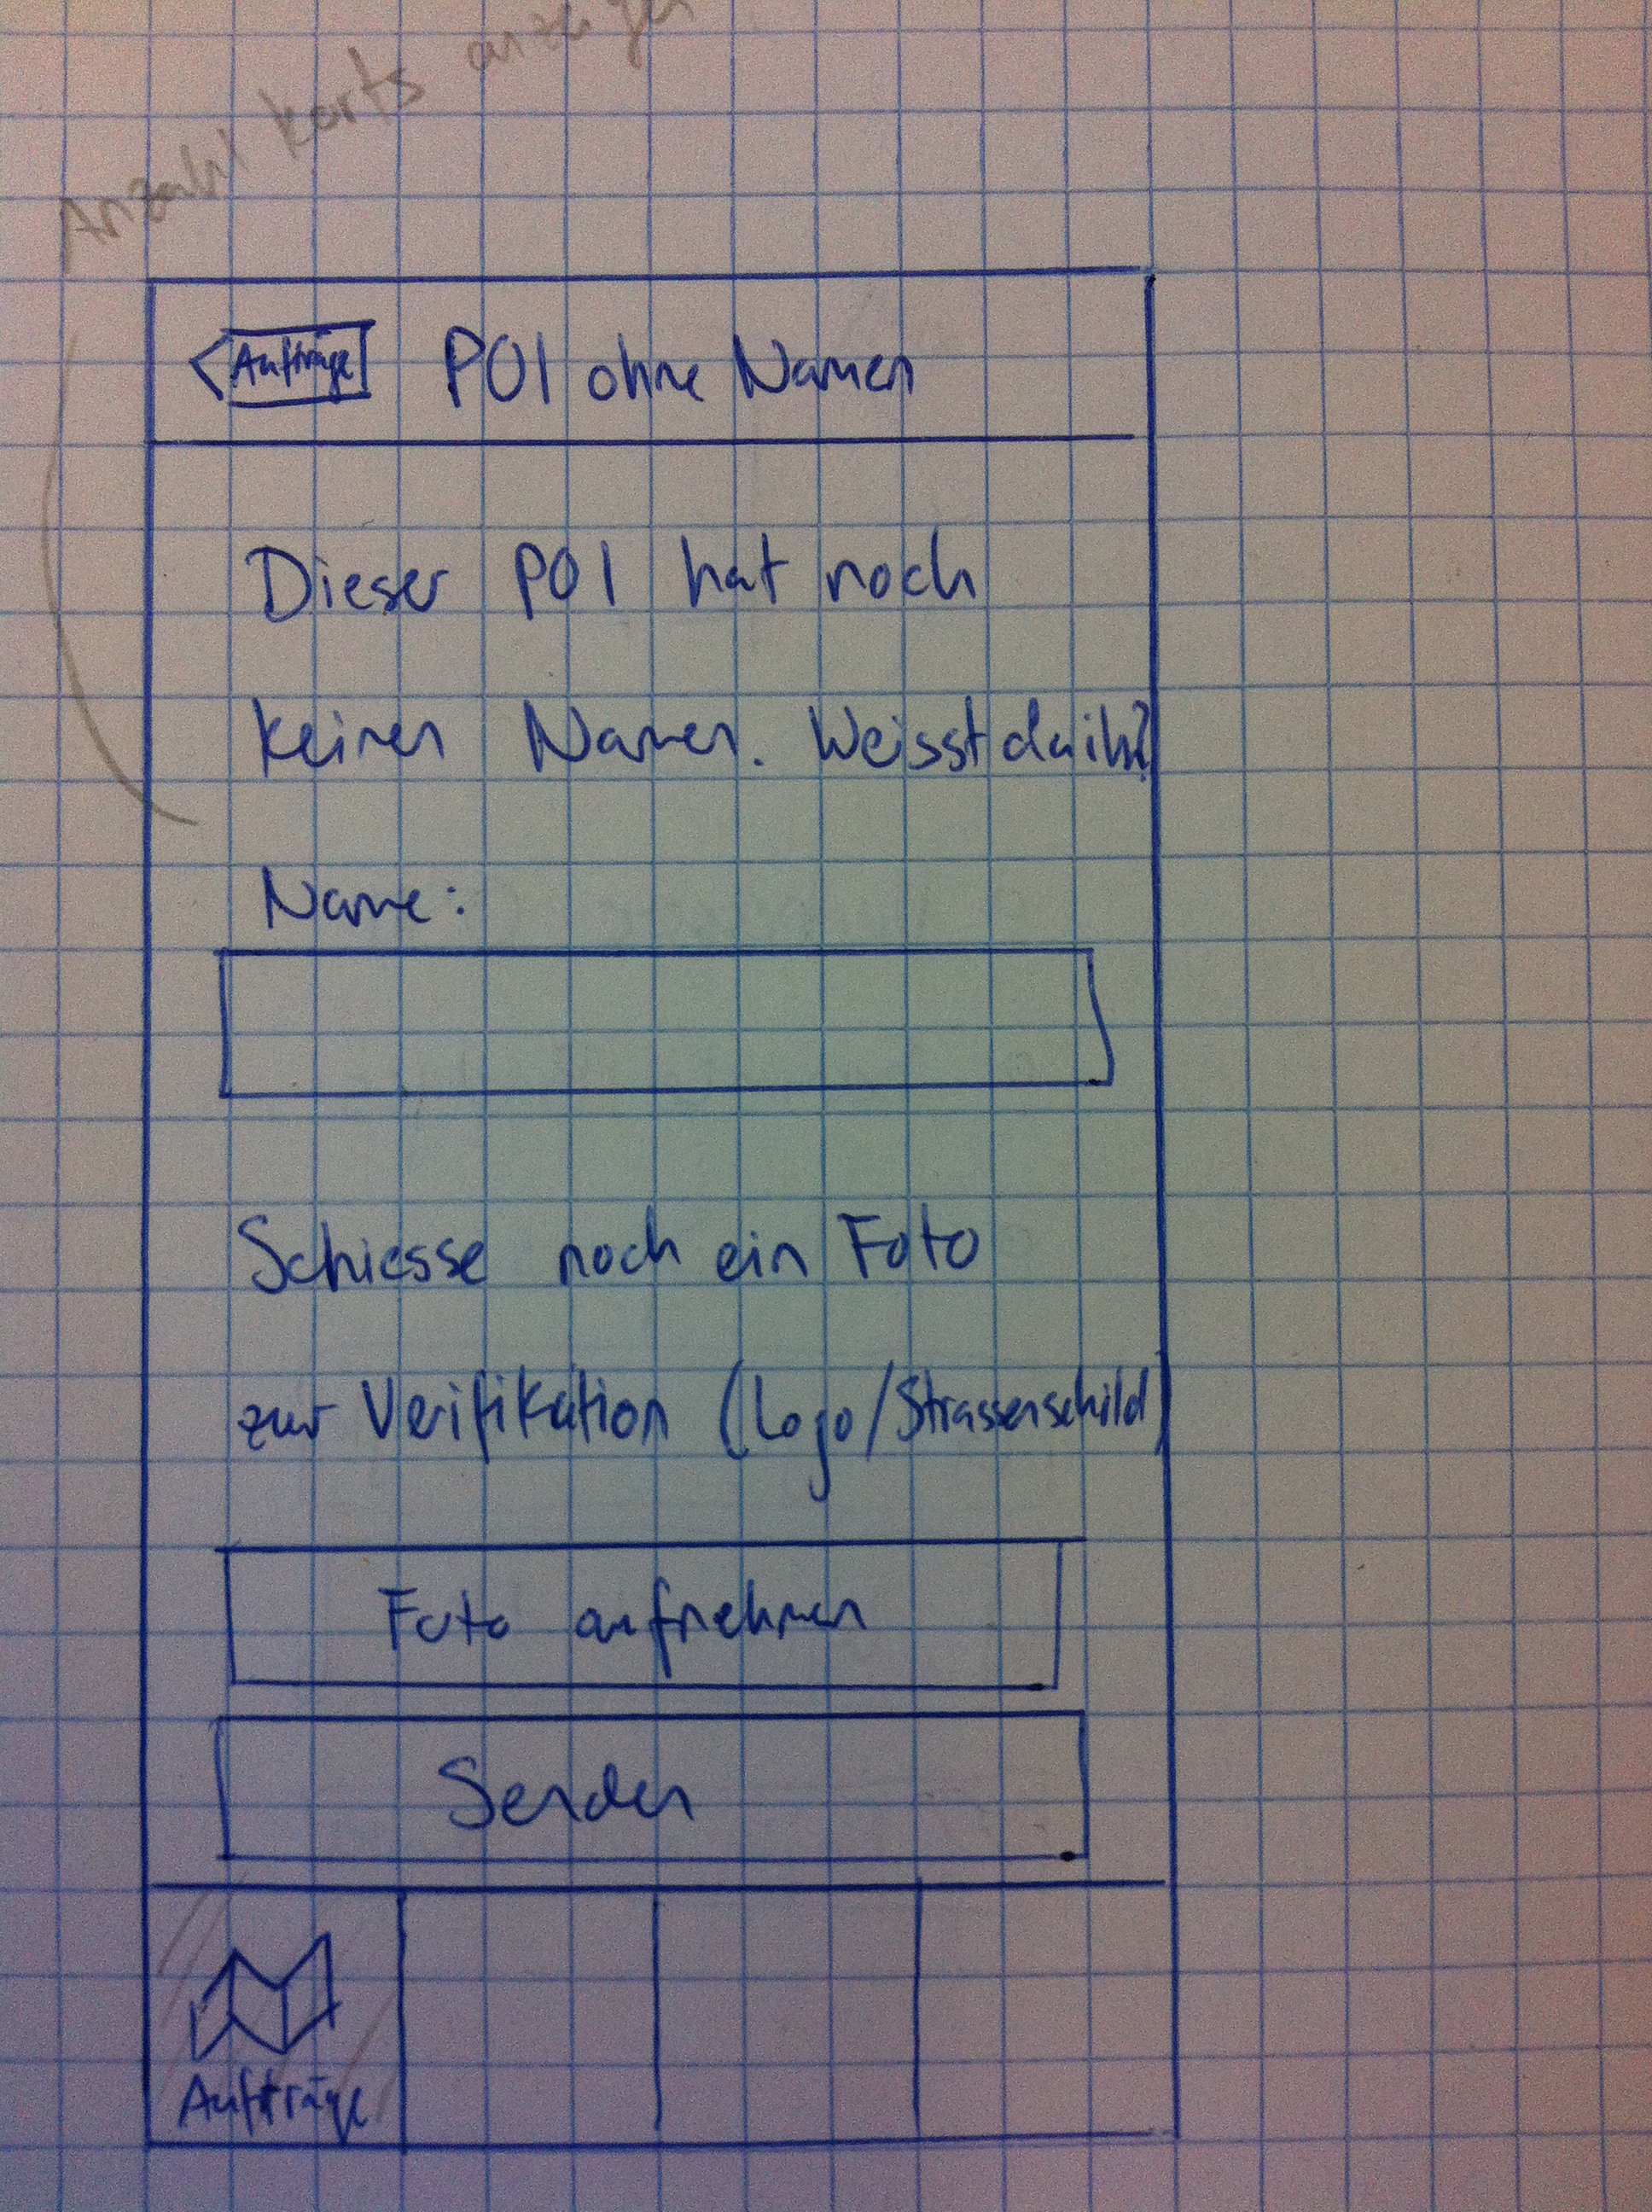 Anzahl Korts anzeigen
Aufträge POI ohne Namen
Dieser POI hat noch
keinen Namen. Weisst du ihn?
Name:
Schiesse noch ein Foto
zur Verifikation (Logo/Strassenschild)
Foto aufnehmen
Senden
Aufträge